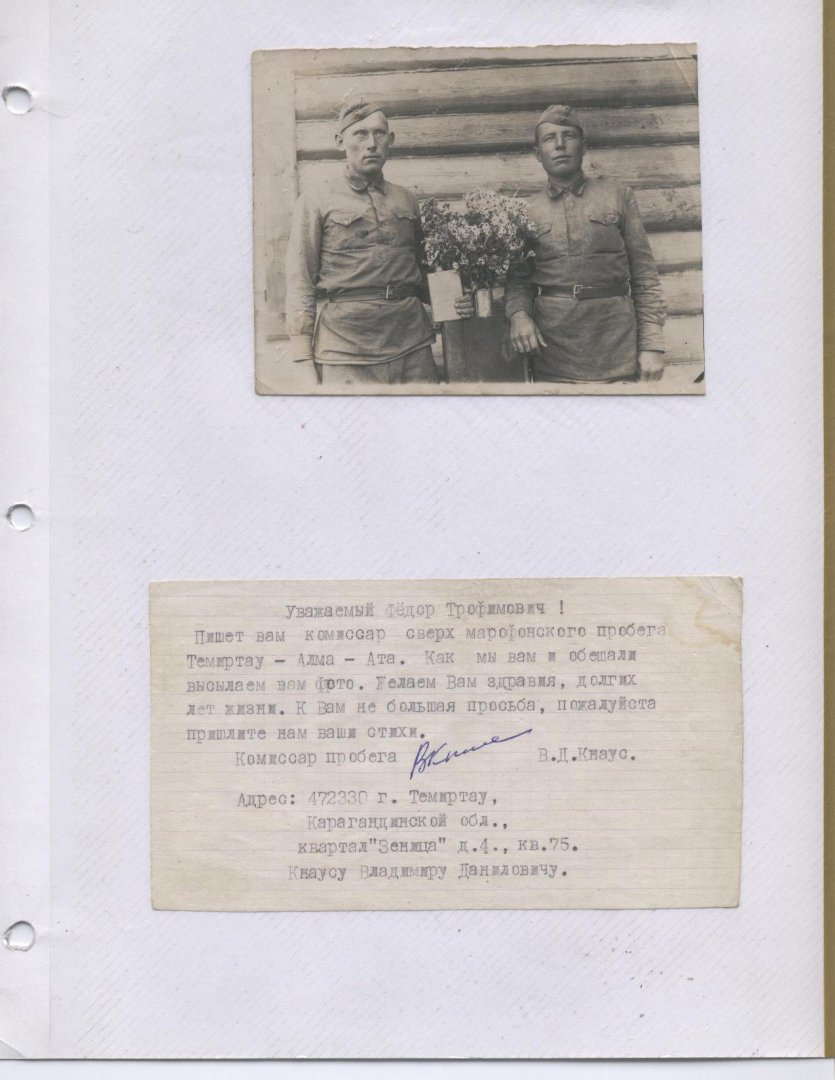 Уважаемый Фёдор Трофимович !
Пишет вам комиссар сверх марофонского пробега
Темиртау - Алма - Ата. Как мы вам и обещали
высылаем вам фото. Желаем Вам здравия, долгих
лет жизни. К Вам не большая просьба, пожалуйста
пришлите нам ваши стихи.
Комиссар пробега В.Д.Кнаус.
Адрес: 472330 г. Темиртау,
Карагандинской обл.,
квартал"Зеница" д.4., кв.75.
Кнаусу Владимиру Даниловичу.